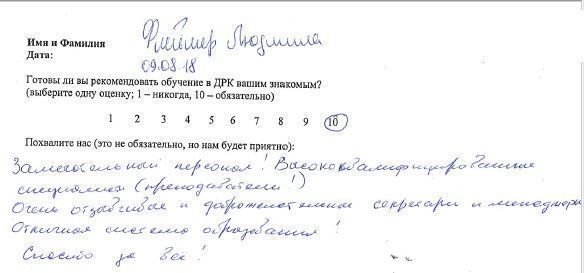 Имя и Фамилия Флеймер Людмила
Дата: 09.08.18
Готовы ли вы рекомендовать обучение в ДРК вашим знакомым?
(выберите одну оценку; 1 – никогда, 10 – обязательно)
1 2 3 4 5 6 7 8 9 10
Похвалите нас (это не обязательно, но нам будет приятно):
Замечательный персонал! Высококвалифицированные
специалисты (преподаватели!)
Очень отзывчивые и доброжелательные секретари и менеджеры
Отличная система образования!
Спасибо за все!